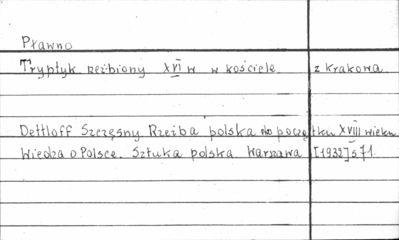 Pławno
Tryptyk rzeźbiony XVI w w kościele z Krakowa
Dettloff Szczęsny. Rzeźba polska do początku XVIII wieku.
Wiedza o Polsce. Sztuka polska Warszawa [1932] s 71.